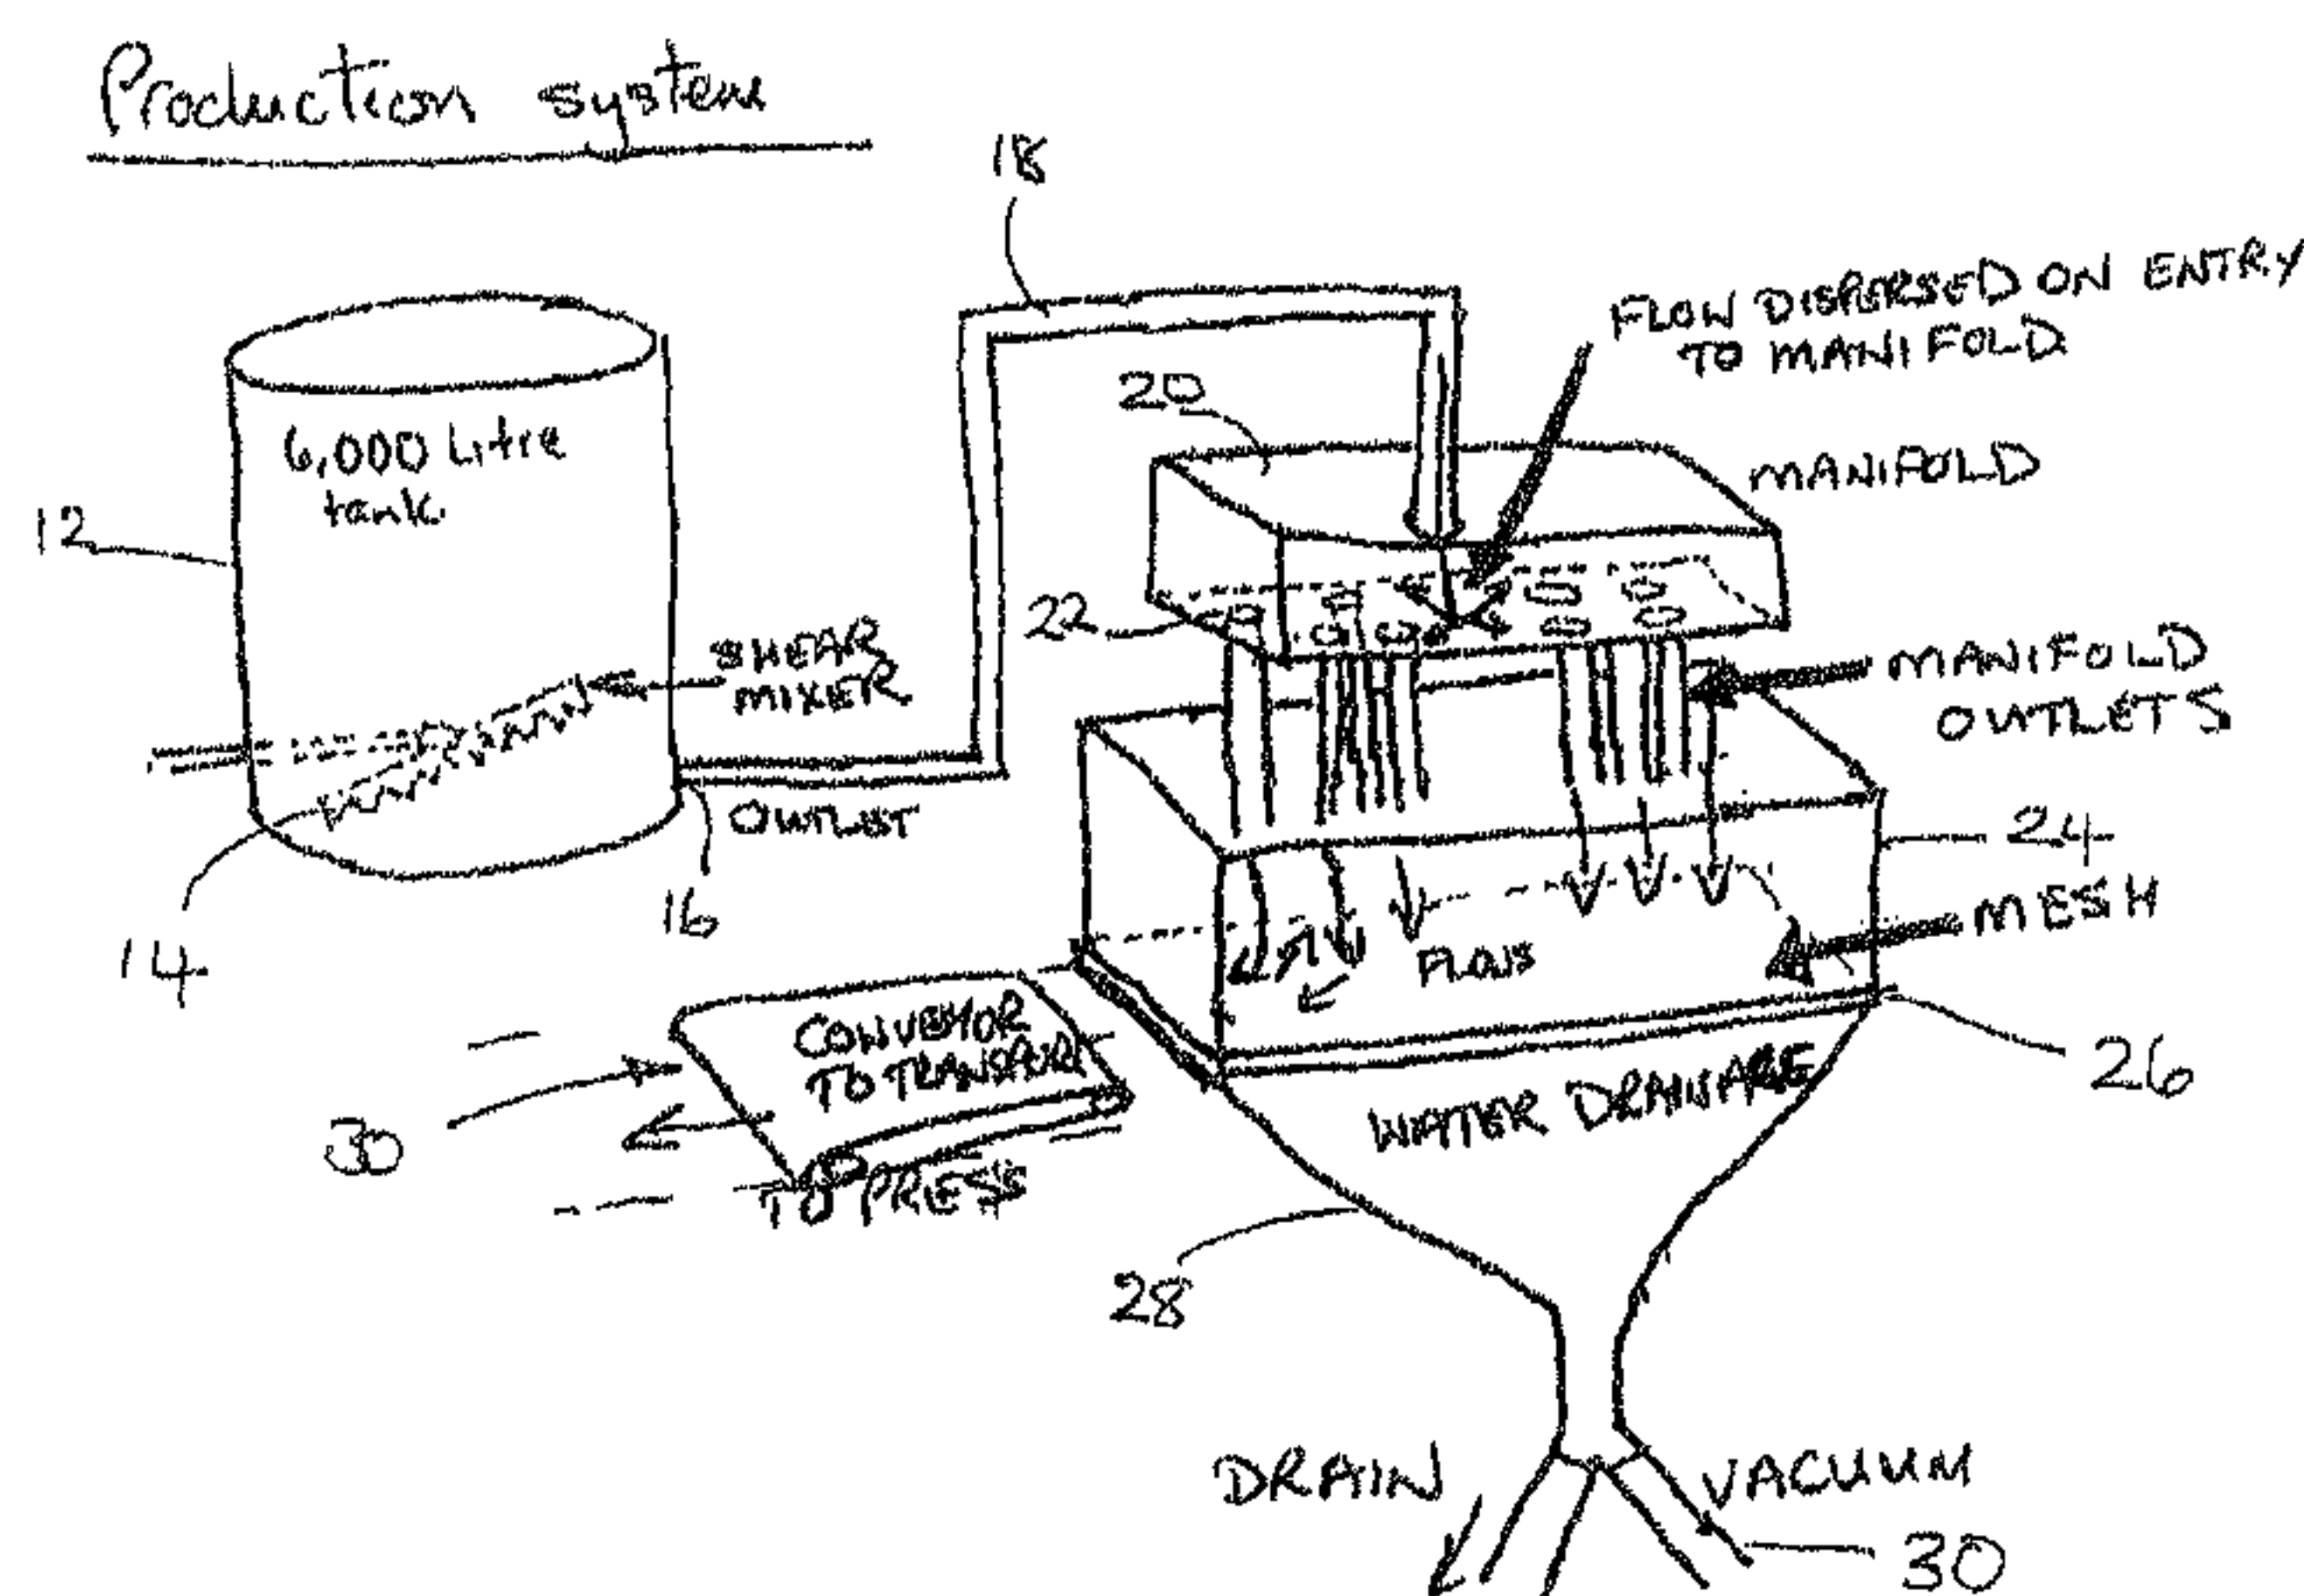 Production system
18
FLOW DISPERSED ON ENTRY
TO MANIFOLD
20
MANIFOLD
6,000 Litre
tank
12
22
SHEAR
MIXER
MANIFOLD
OUTLETS
OUTLET
24
MESH
16
14
FLOW
CONVEYOR
TO TRANSFER
TO PRESS
30
26
WATER DRAINAGE
28
DRAIN
VACUUM
30